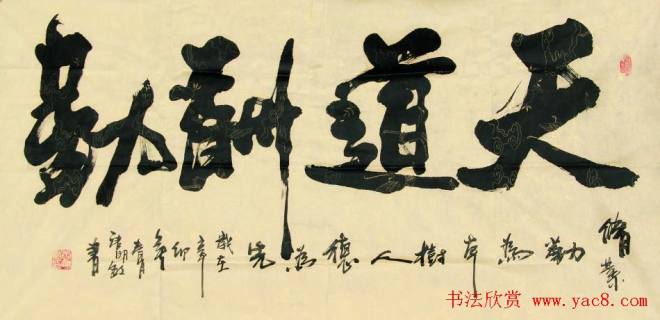 天道酬勤
脩業
勤為本樹人德為先歲在辛卯
書
书法欣赏
www.yac8.com